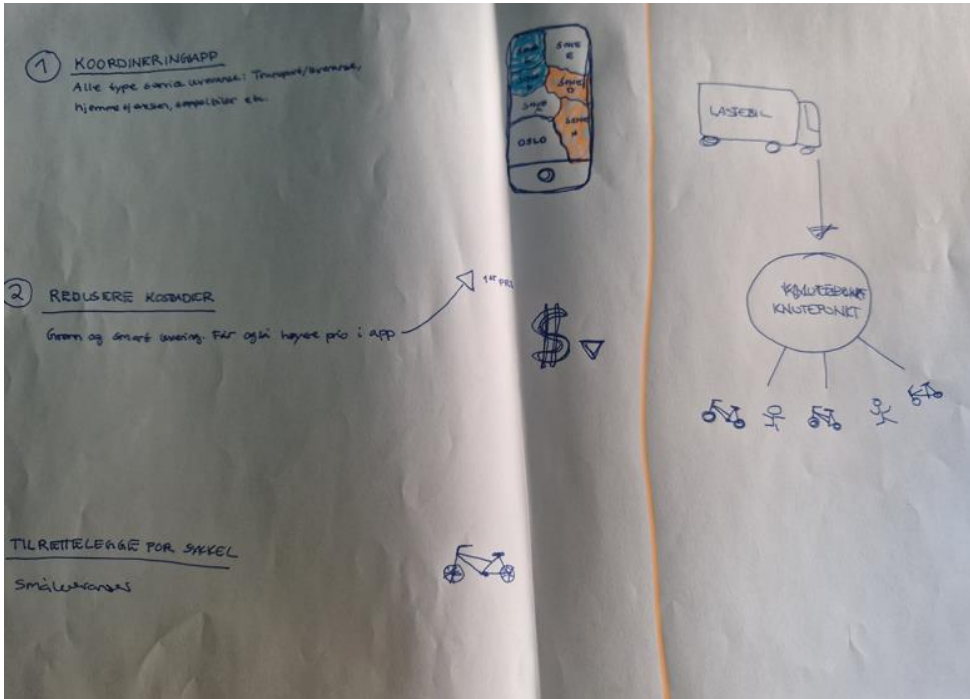 1 KOORDINERINGSAPP
Alle type service leveranse: Transport/leveranse,
hjemmetjenesten, søppelbiler etc.
SONE
SONE
SONE
SONE
OSLO
LASTEBIL
KNUTEPUNKT
2 REDUSERE KOSTNADER
Grønn og smart levering. Får også høyere prio i app
1st PRI
$
TILRETTELEGGE FOR SYKKEL
Småleveranser